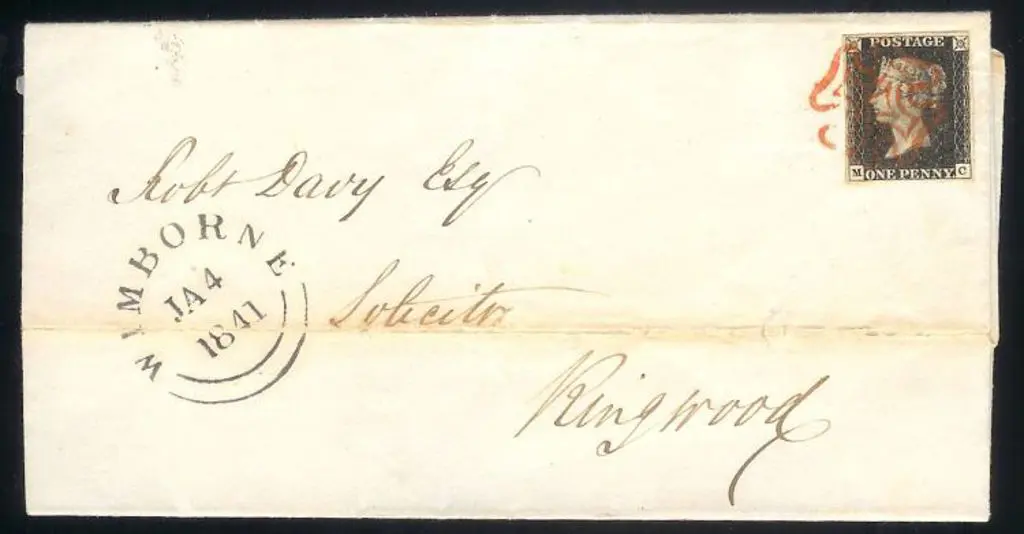 POSTAGE
M ONE PENNY C
Robt Davy Esq
WIMBORNE
JA 4
1841
Solicitor
Ringwood